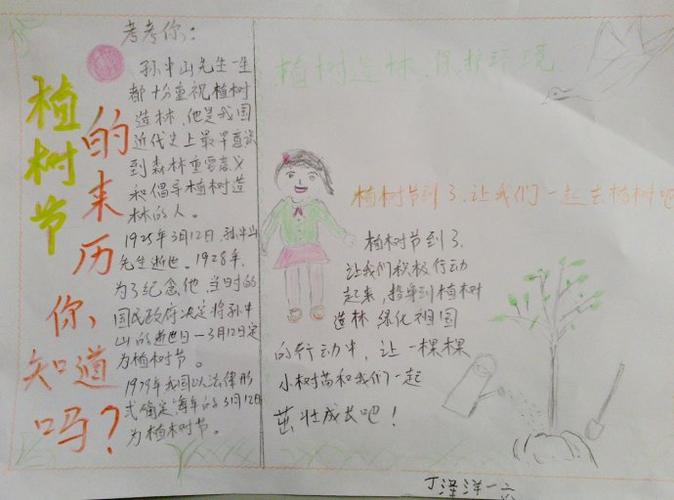 植树节
的来历
你
知道
吗?
考考你:
孙中山先生一生
都十分重视植树
造林,他是我国
近代史上最早意识
到森林重要意义
和倡导植树造
林的人。
1925年3月12日,孙中山
先生逝世。1928年,
为了纪念他,当时的
国民政府决定将孙中
山的逝世日—3月12日定
为植树节。
1979年我国以法律形
式确定每年的3月12日
为植树节。
植树造林,保护环境
植树节到了,让我们一起去植树吧
植树节到了,
让我们积极行动
起来,投身到植树
造林 绿化祖国
的行动中,让一棵棵
小树苗和我们一起
茁壮成长吧!
丁泽洋一